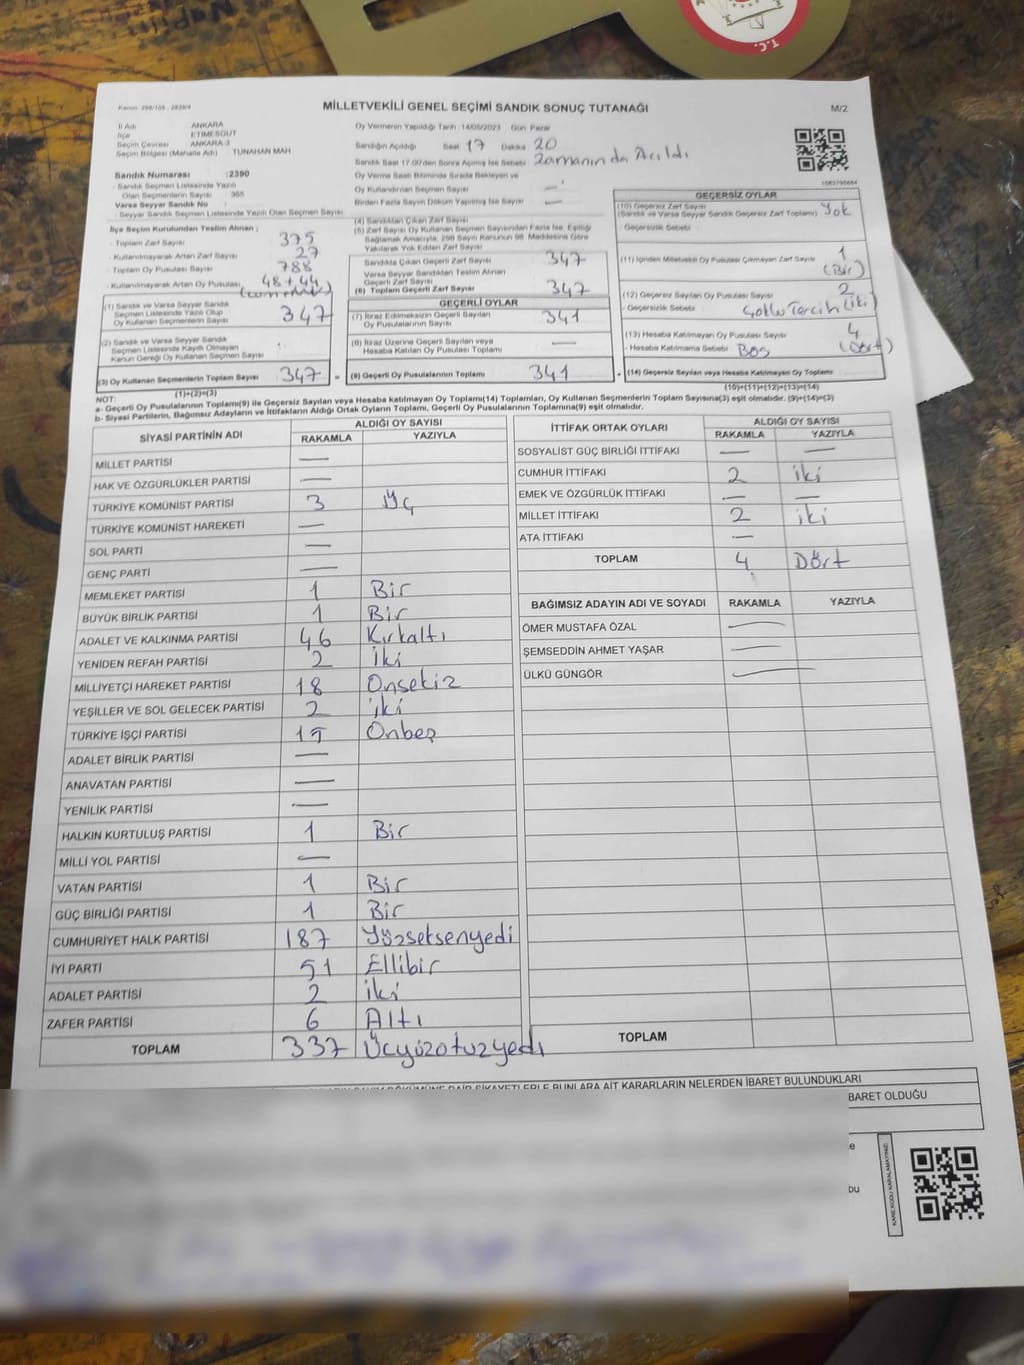 T.C.
Kanun: 298/105 - 2839/4
MİLLETVEKİLİ GENEL SEÇİMİ SANDIK SONUÇ TUTANAĞI
M/2
İl Adı ANKARA
İlçe ETİMESGUT
Seçim Çevresi ANKARA-3
Seçim Bölgesi (Mahalle Adı) TUNAHAN MAH
Sandık Numarası :2390
- Sandık Seçmen Listesinde Yazılı
Olan Seçmenlerin Sayısı 365
Varsa Seyyar Sandık No
- Seyyar Sandık Seçmen Listesinde Yazılı Olan Seçmen Sayısı
İlçe Seçim Kurulundan Teslim Alınan ;
- Toplam Zarf Sayısı 375
- Kullanılmayarak Artan Zarf Sayısı 27
- Toplam Oy Pusulası Sayısı 788
- Kullanılmayarak Artan Oy Pusulası 48+44
(1) Sandık ve Varsa Seyyar Sandık
Seçmen Listesinde Yazılı Olup
Oy Kullanan Seçmenlerin Sayısı 347
(2) Sandık ve Varsa Seyyar Sandık
Seçmen Listesinde Kayıtlı Olmayan
Kanun Gereği Oy Kullanan Seçmen Sayısı
(3) Oy Kullanan Seçmenlerin Toplam Sayısı 347 =
(1)+(2)=(3)
Oy Vermenin Yapıldığı Tarih :14/05/2023 Gün: Pazar
Sandığın Açıldığı Saat 17 Dakika 20
Sandık Saat 17.00'den Sonra Açılmış İse Sebebi Zamanında Açıldı
Oy Verme Saati Bitiminde Sırada Bekleyen ve
Oy Kullandırılan Seçmen Sayısı —
Birden Fazla Sayım Döküm Yapılmış İse Sayısı —
(4) Sandıktan Çıkan Zarf Sayısı
(5) Zarf Sayısı Oy Kullanan Seçmen Sayısından Fazla İse, Eşitliği
Sağlamak Amacıyla, 298 Sayılı Kanunun 98. Maddesine Göre
Yakılarak Yok Edilen Zarf Sayısı
Sandıkta Çıkan Geçerli Zarf Sayısı 347
Varsa Seyyar Sandıktan Teslim Alınan
Geçerli Zarf Sayısı
(6) Toplam Geçerli Zarf Sayısı 347
GEÇERLİ OYLAR
(7) İtiraz Edilmeksizin Geçerli Sayılan
Oy Pusulalarının Sayısı 341
(8) İtiraz Üzerine Geçerli Sayılan veya
Hesaba Katılan Oy Pusulası Toplamı —
(9) Geçerli Oy Pusulalarının Toplamı 341 +
1083795664
GEÇERSİZ OYLAR
(10) Geçersiz Zarf Sayısı
(Sandık ve Varsa Seyyar Sandık Geçersiz Zarf Toplamı) Yok
- Geçersizlik Sebebi
(11) İçinden Milletvekili Oy Pusulası Çıkmayan Zarf Sayısı 1
(Bir)
(12) Geçersiz Sayılan Oy Pusulası Sayısı 2
- Geçersizlik Sebebi Çoklu Tercih (iki)
(13) Hesaba Katılmayan Oy Pusulası Sayısı 4
- Hesaba Katılmama Sebebi Boş (Dört)
(14) Geçersiz Sayılan veya Hesaba Katılmayan Oy Toplamı
(10)+(11)+(12)+(13)=(14)
NOT:
a- Geçerli Oy Pusulalarının Toplamı(9) ile Geçersiz Sayılan veya Hesaba Katılmayan Oy Toplamı(14) Toplamları, Oy Kullanan Seçmenlerin Toplam Sayısına(3) eşit olmalıdır. (9)+(14)=(3)
b- Siyasi Partilerin, Bağımsız Adayların ve İttifakların Aldığı Ortak Oyların Toplamı, Geçerli Oy Pusulalarının Toplamına(9) eşit olmalıdır.
SİYASİ PARTİNİN ADI ALDIĞI OY SAYISI
RAKAMLA YAZIYLA
MİLLET PARTİSİ —
HAK VE ÖZGÜRLÜKLER PARTİSİ —
TÜRKİYE KOMÜNİST PARTİSİ 3 Üç
TÜRKİYE KOMÜNİST HAREKETİ —
SOL PARTİ —
GENÇ PARTİ —
MEMLEKET PARTİSİ 1 Bir
BÜYÜK BİRLİK PARTİSİ 1 Bir
ADALET VE KALKINMA PARTİSİ 46 Kırkaltı
YENİDEN REFAH PARTİSİ 2 İki
MİLLİYETÇİ HAREKET PARTİSİ 18 Onsekiz
YEŞİLLER VE SOL GELECEK PARTİSİ 2 iki
TÜRKİYE İŞÇİ PARTİSİ 15 Onbeş
ADALET BİRLİK PARTİSİ —
ANAVATAN PARTİSİ —
YENİLİK PARTİSİ —
HALKIN KURTULUŞ PARTİSİ 1 Bir
MİLLİ YOL PARTİSİ —
VATAN PARTİSİ 1 Bir
GÜÇ BİRLİĞİ PARTİSİ 1 Bir
CUMHURİYET HALK PARTİSİ 187 Yüzseksenyedi
İYİ PARTİ 51 Ellibir
ADALET PARTİSİ 2 iki
ZAFER PARTİSİ 6 Altı
TOPLAM 337 Üçyüzotuzyedi
İTTİFAK ORTAK OYLARI ALDIĞI OY SAYISI
RAKAMLA YAZIYLA
SOSYALİST GÜÇ BİRLİĞİ İTTİFAKI — —
CUMHUR İTTİFAKI 2 iki
EMEK VE ÖZGÜRLÜK İTTİFAKI — —
MİLLET İTTİFAKI 2 iki
ATA İTTİFAKI —
TOPLAM 4 Dört
BAĞIMSIZ ADAYIN ADI VE SOYADI RAKAMLA YAZIYLA
ÖMER MUSTAFA ÖZAL —
ŞEMSEDDİN AHMET YAŞAR —
ÜLKÜ GÜNGÖR —
TOPLAM
DÖKÜMÜNE DAİR ŞİKAYETLERLE BUNLARA AİT KARARLARIN NELERDEN İBARET BULUNDUKLARI
BARET OLDUĞU
e
bu
KARE KODU KARALAMAYINIZ!